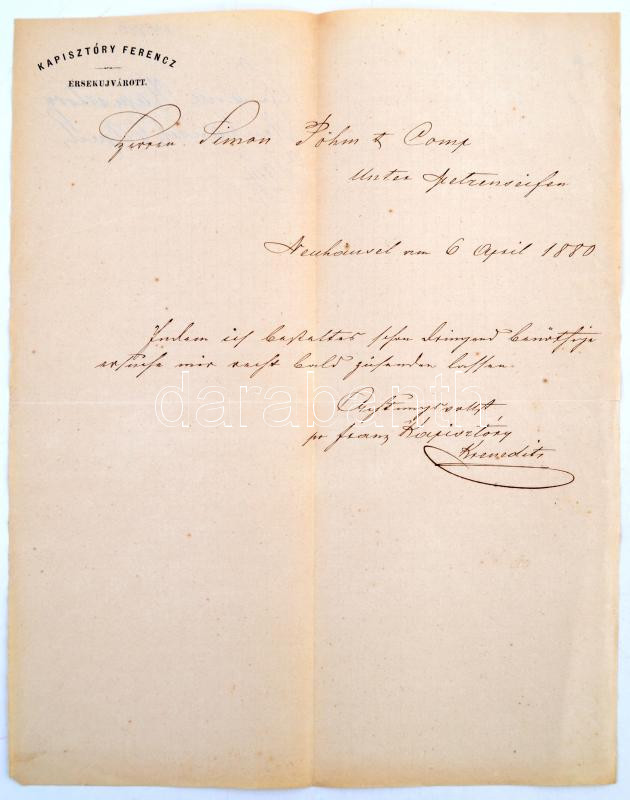 KAPISZTÓRY FERENCZ
ÉRSEKUJVÁROTT.
Herrn Simon Böhm & Comp
Unter Metzenseifen
Neuhäusel am 6 April 1880
Indem ich bestelltes schon dringend benöthige
ersuche mir recht bald zusenden lassen.
Achtungsvollst
pr Franz Kapisztóry
darabanth